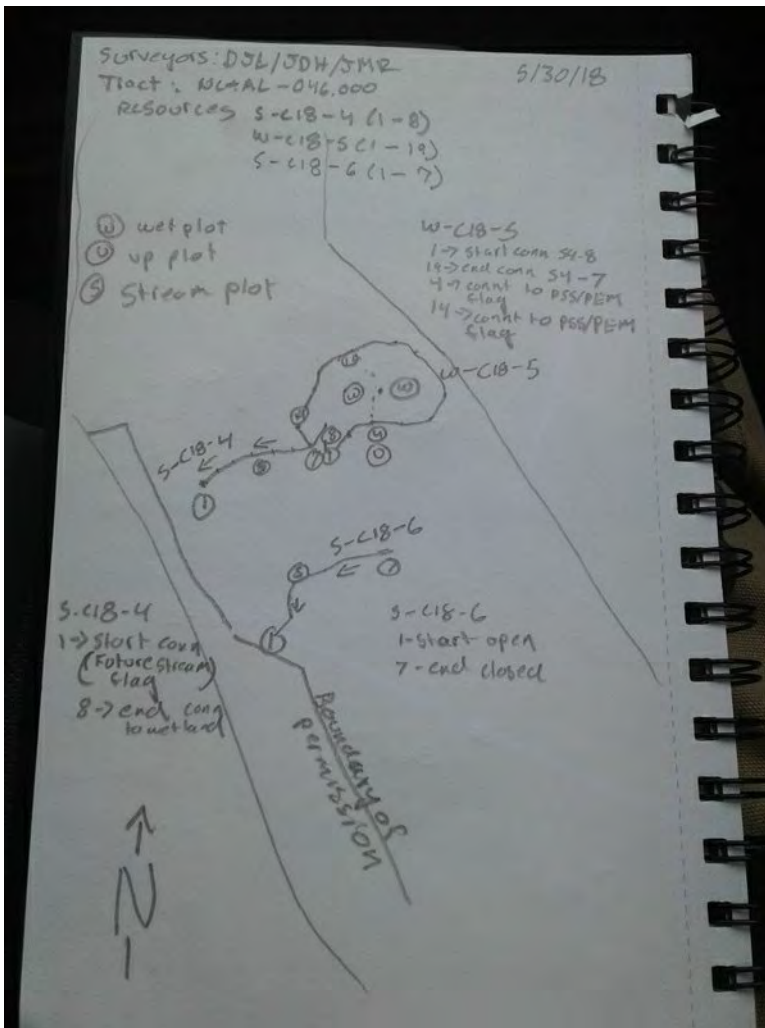 Surveyors: DJL/JDH/JMR
5/30/18
Tract: NC-AL-046.000
Resources S-C18-4 (1-8)
W-C18-5 (1-19)
S-C18-6 (1-7)
W wet plot
U up plot
S stream plot
W-C18-5
1-> start conn S4-8
19->end conn S4-7
4-> connt to PSS/PEM
flag
14->connt to PSS/PEM
flag
W-C18-5
W
W
4
U
S-C18-4
S
1
S-C18-6
S
7
1
S-C18-4
1-> start conn
(Future stream
flag)
8-> end conn
to wetland
S-C18-6
1-start open
7-end closed
Boundary of
permission
N